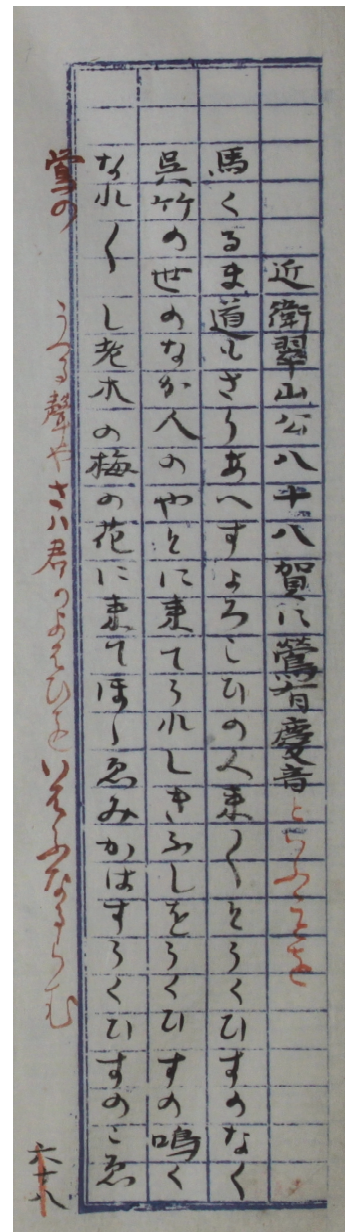 近衛翠山公八十八賀に鶯有慶音といふことを
馬くるま道もさりあへすよろこひの人来〱とうくひすのなく
呉竹の世のなか人のやとに来てうれしきふしをうくひすの鳴く
なれ〱し老木の梅の花に来てほゝゑみかはすうくひすのこゑ
鶯の うたふ聲やさハ君かよはひをいはふなるらむ
六十八